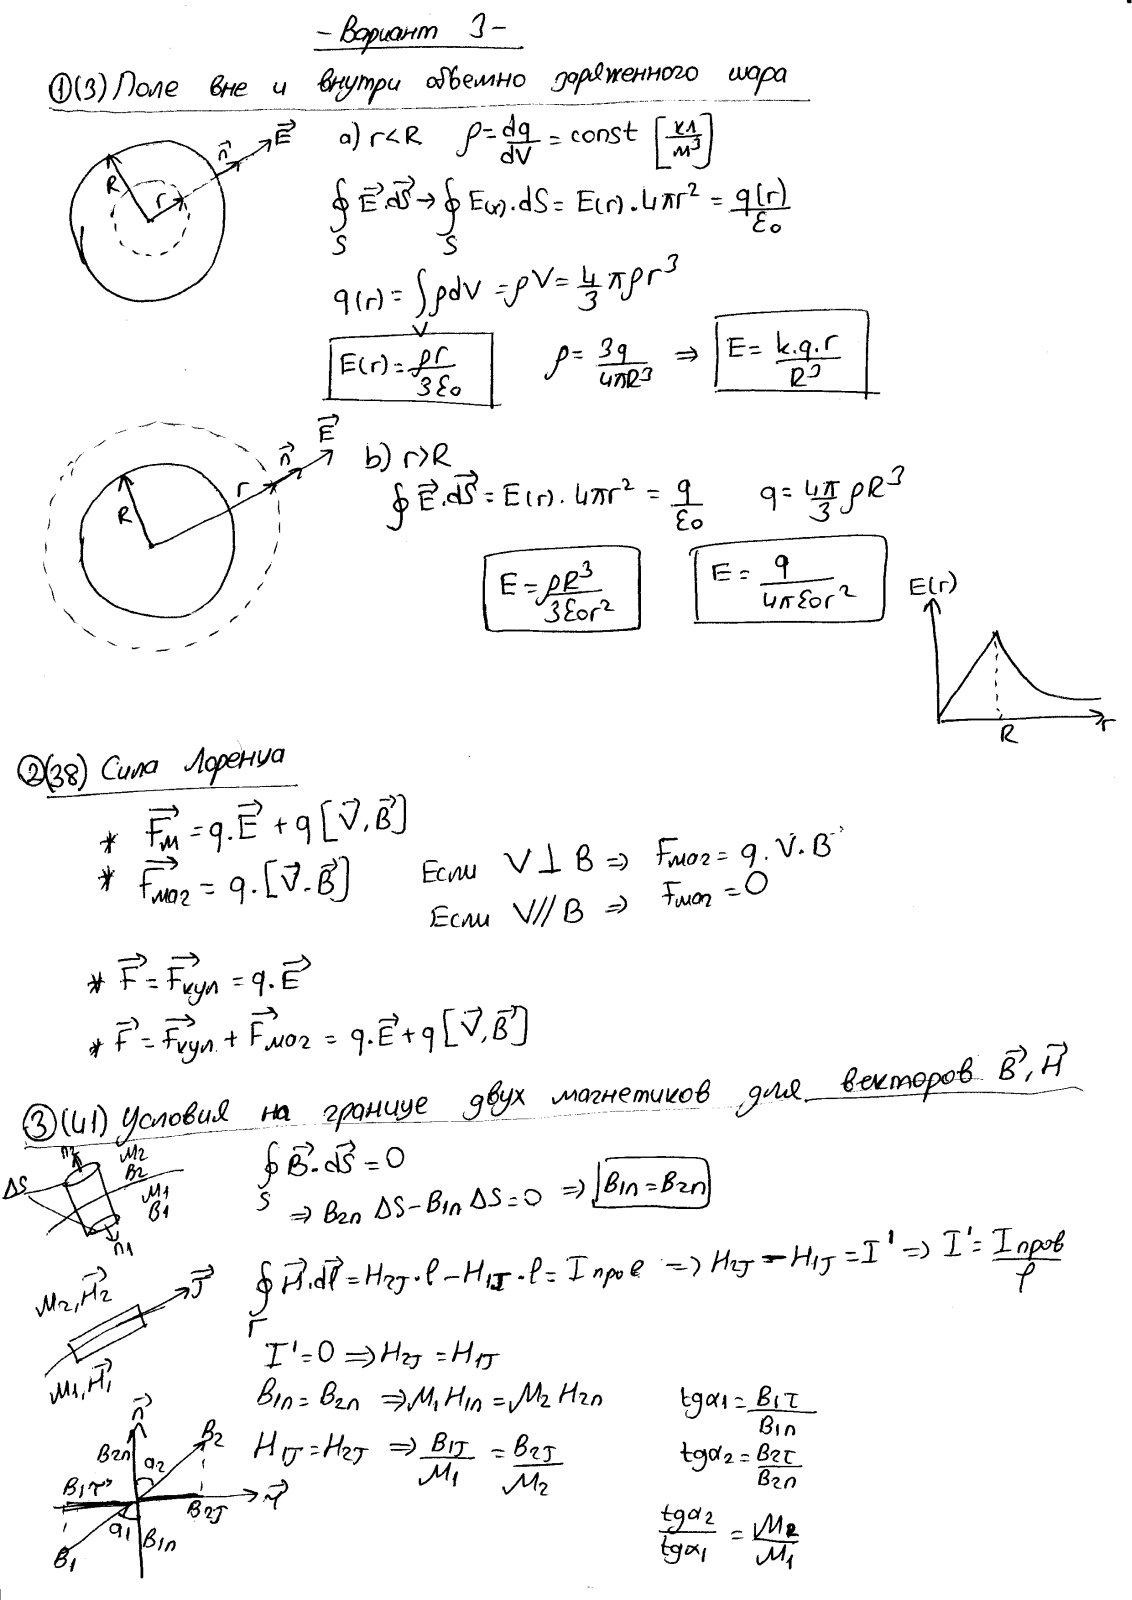 - Вариант 3 -
①(3) Поле вне и внутри объемно заряженного шара
a) r<R ρ = dq/dV = const [кл/м³]
n⃗ E⃗ R r
∮_S E⃗·dS⃗ → ∮_S E(r)·dS = E(r)·4πr² = q(r)/ε₀
q(r) = ∫_V ρdV = ρV = 4/3 πρr³
E(r) = ρr/3ε₀ ρ = 3q/4πR³ ⇒ E = k.q.r/R³
b) r>R
n⃗ E⃗ R r
∮ E⃗·dS⃗ = E(r)·4πr² = q/ε₀ q = 4π/3 ρR³
E = ρR³/3ε₀r² E = q/4πε₀r²
E(r)
R r
②(38) Сила Лоренца
* F⃗м = q.E⃗ + q[V⃗, B⃗]
* F⃗маг = q.[V⃗.B⃗] Если V ⊥ B ⇒ Fмаг = q.V.B
Если V // B ⇒ Fмаг = 0
* F⃗ = F⃗кул = q.E⃗
* F⃗ = F⃗кул + F⃗маг = q.E⃗ + q[V⃗, B⃗]
③(41) Условия на границе двух магнетиков для векторов B⃗, H⃗
n₂ M₂ B₂ ΔS M₁ B₁ n₁
∮_S B⃗·dS⃗ = 0
⇒ B₂n ΔS - B₁n ΔS = 0 ⇒ B₁n = B₂n
M₂, H⃗₂ τ⃗ M₁, H⃗₁
∮_Γ H⃗·dl⃗ = H₂τ·l - H₁τ·l = Iпров ⇒ H₂τ - H₁τ = I' ⇒ I' = Iпров/l
I' = 0 ⇒ H₂τ = H₁τ
B₁n = B₂n ⇒ M₁H₁n = M₂H₂n tgα₁ = B₁τ/B₁n
H₁τ = H₂τ ⇒ B₁τ/M₁ = B₂τ/M₂ tgα₂ = B₂τ/B₂n
tgα₂/tgα₁ = M₂/M₁
n⃗ B₂n α₂ B₂
B₁τ B₂τ τ⃗
α₁ B₁n B₁